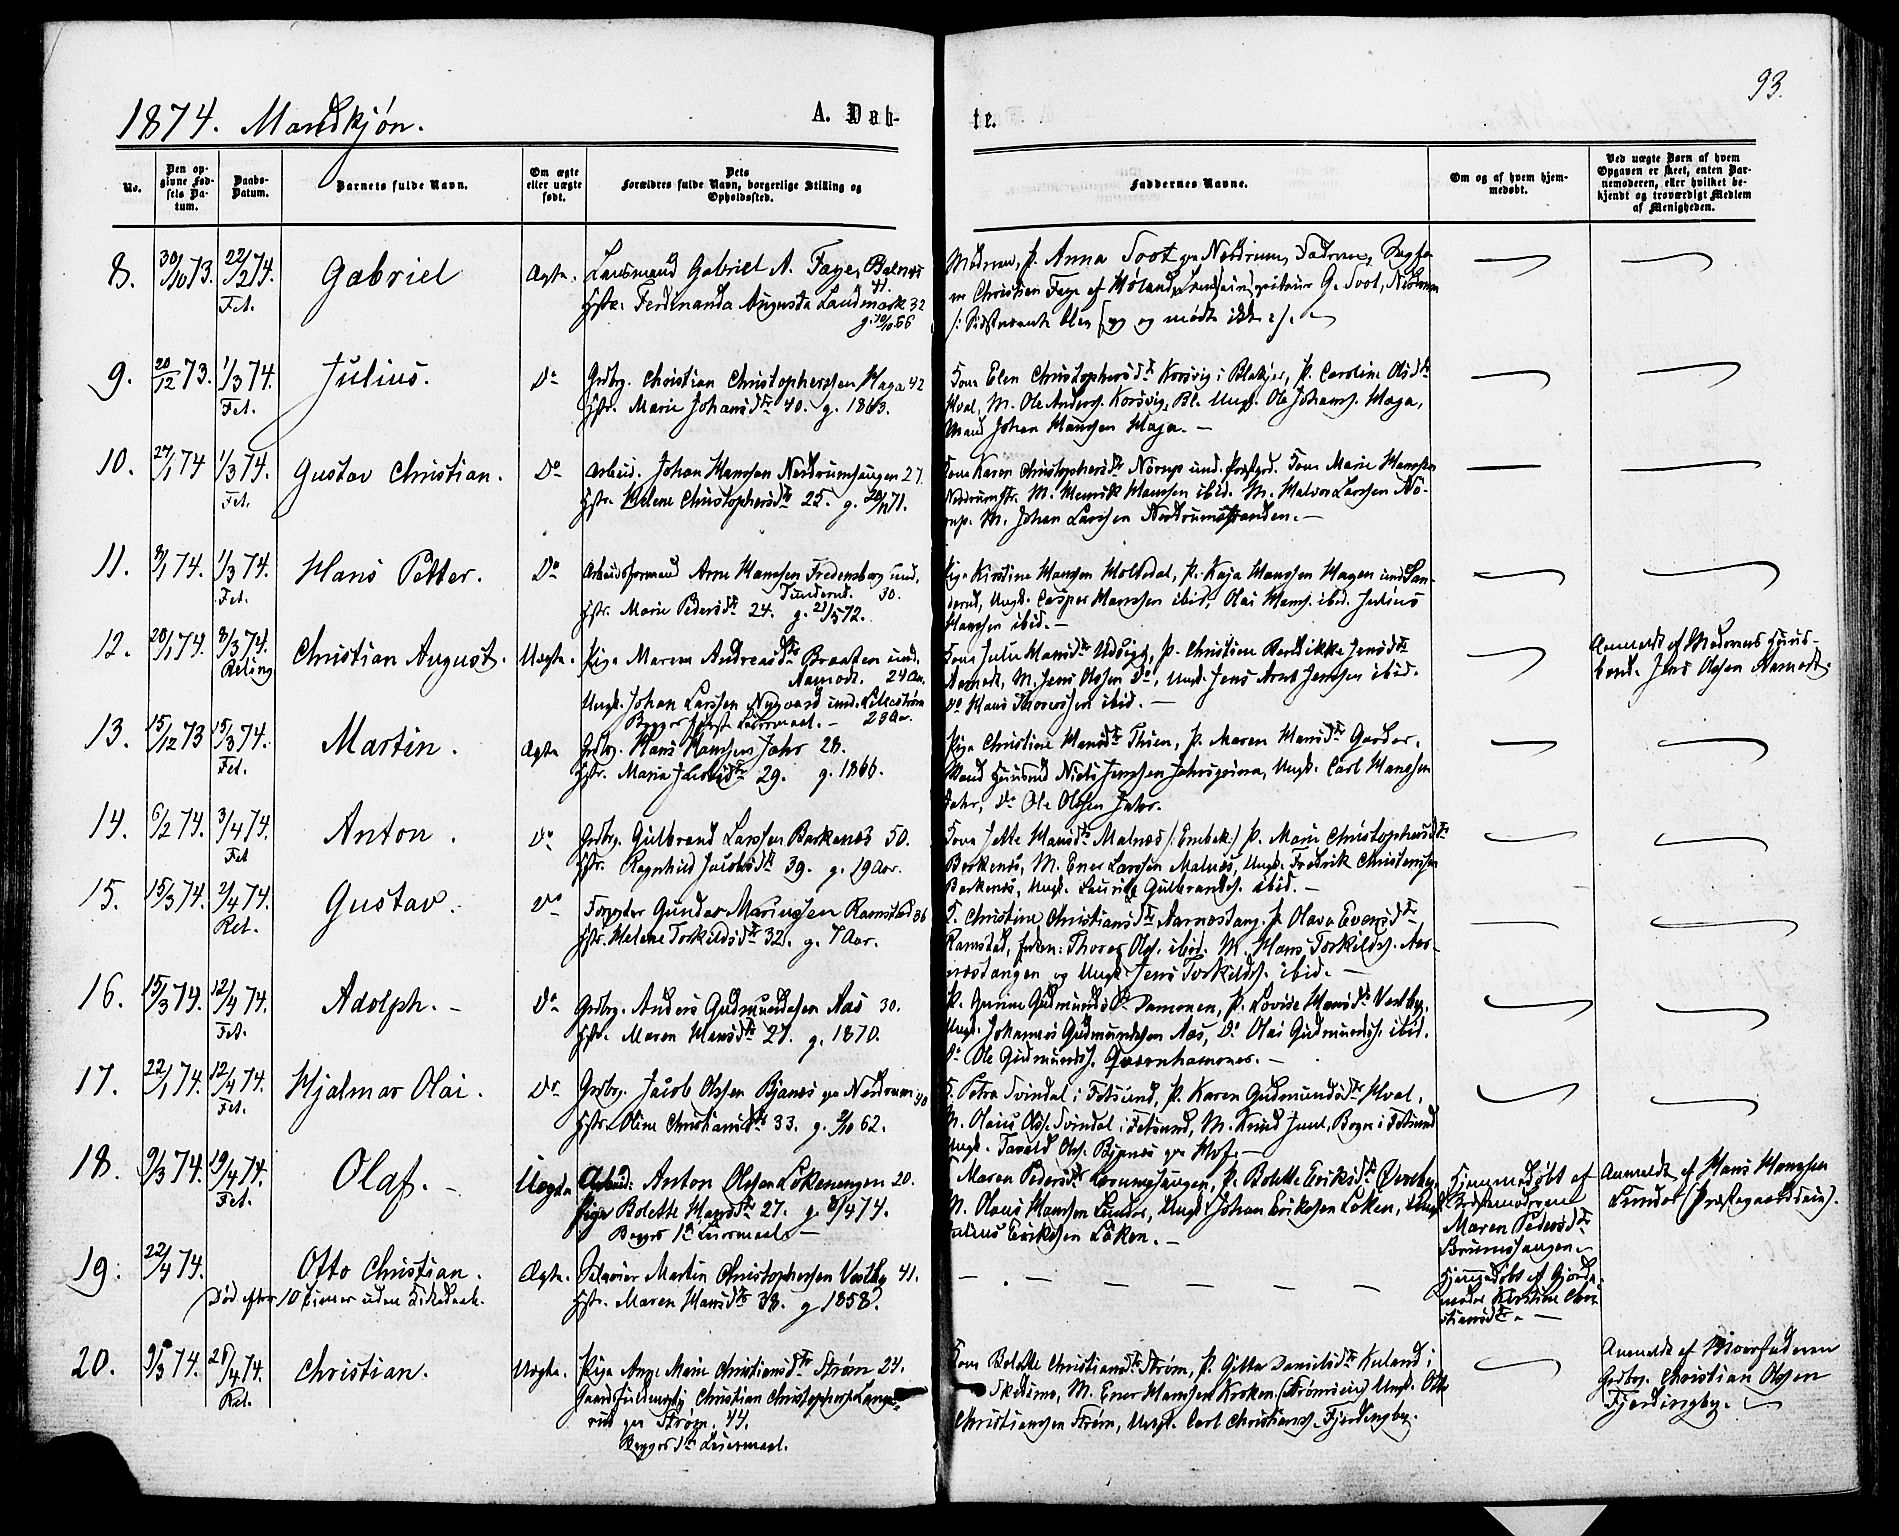 93.
1874. Mandkjøn.
A. Døb-
te.
No.
Den op-
givne Fød-
sels Da-
tum.
Daabs-
Datum.
Barnets fulde Navn.
Om ægte
eller uægte
født.
Dets
Forældres fulde Navn, borgerlige Stilling og
Opholdssted.
Faddernes Navne.
Om og af hvem hjem-
medøbt.
Ved uægte Børn af hvem
Opgaven er skeet, enten Bar-
nemoderen, eller hvilket be-
kjendt og troværdigt Medlem
af Menigheden.
8. 30/10 73. 22/2 74. Gabriel Ægte. Lensmand Gabriel A. Faye, Balnes
Fet.
41.
Hstr. Ferdinanda Augusta Landmark 32
g. 10/10 66
Anna Soot
Christian Faye af Høland, G. Soot,
og mødte ikke :/.
9. 20/12 73. 1/3 74. Julius. Do Grdbrg. Christian Christophersen Haga 42
Fet.
Hstr. Marie Johansdtr 40. g. 1863.
Kone Elen Christophersdtr Korsvig i Blakjer, P. Caroline Olsdtr
Hval, M. Ole Anders. Korsvig, Bl. Ungk. Ole Johans. Haga,
Mand Johan Hanssen Haga.
10. 27/1 74 1/3 74. Gustav Christian. Do Arbeid. Johan Hanssen Nordrumhaugen 27.
Fet.
Hstr. Helene Christophersdtr 25. g. 71.
Kone Karen Christophersdtr Nørup und. Præstgrd. Kone Marie Hanssen
M. Henrik Hanssen ibid. M. Halvor Larssen Nø-
rup. M. Johan Larssen Nordrumstranden.
11. 8/1 74. 1/3 74. Hans Petter. Do Arbeidsformand Arne Hanssen Fredensborg und.
Fet.
30.
Hstr. Marie Pedersdtr 24. g. 21/5 72.
Pige Kirstine Hanssen Holtedal, P. Kaja Hanssen Hagen und
Ungk. Casper Hanssen ibid, Olai Hans. ibid. Julius
Hanssen ibid.
12. 28/1 74. 8/3 74. Christian August. Uægte. Pige Maren Andreasdtr Braaten und.
Reling
Aamodt. 24 Aar.
Ungk. Johan Larssen Nygaard und. Lillestrøm
Begges første Leiermaal. 23 Aar.
Kone Julie Hansdtr P. Christine Jensdtr
Aamodt, M. Jens Olssen Do, Ungk. Jens Arnt Jenssen ibid.
Do Hans Thorvssen ibid.
Anmeldt af Moderens Huus-
bond. Jens Olssen Aamodt.
13. 15/12 73 15/3 74. Martin. Ægte Grdbrg. Hans Hanssen Jahr 28.
Fet.
Hstr. Maria 29. g. 1866.
Pige Christine Hansdtr Thien, P. Maren Hansdtr Garder.
Mand Huusmd Niels Jenssen Jahrseiern, Ungk. Carl Hanssen
Jahr, Do Ole Olssen Jahr.
14. 6/2 74. 3/4 74. Anton. Do Grdbrg. Gulbrand Larssen Berkenes 50.
Fet
Hstr. Ragnhild Jacobsdtr 39. g. 19 Aar.
Kone Jette Hansdtr Malnes (: Embek:) P. Marie Christophersdtr
Berkenes, M. Ener Larssen Malnes, Ungk. Fredrik Christenssen
Berkenes, Ungk. Lauritz Gulbrands. ibid.
15. 15/3 74. 2/4 74. Gustav. Do Forpgter Gunder Mariussen Ramstad 36
Rel.
Hstr. Helene Torkildsdtr 32. g. 7 Aar.
K. Christine Christiansdtr Aarnestang. P. Olava Evensdtr
Ramstad, Enken: Thorer Ols. ibid. M. Hans Torkilds. Aar-
nestangen og Ungk Jens Torkilds. ibid.
16. 15/3 74. 12/4 74. Adolph. Do Grdbrg. Anders Gudmundssen Aas 30.
Fet.
Hstr. Maren Hansdtr 27. g. 1870.
P. Gurine Gudmundsdtr P. Lovise Hansdtr Vestby,
Ungk. Johannes Gudmundssen Aas, Do Olai Gudmunds. ibid.
Do Ole Gudmunds. Qvernhammer.
17. 22/1 74. 12/4 74. Hjalmar Olai. Do Grdbrg. Jacob Olssen Bjanes 40
Fet.
Hstr. Oline Christiansdtr 33. g. 62.
K. Petra Svindal i Fetsund, P. Karen Gudmundsdtr Hval,
M. Olaus Ols. Svindal i Fetsund, M. Knud Juul, Bogn i Fetsund
Ungk. Tarald Ols. Bjanes
18. 9/3 74. 19/4 74. Olaf. Uægte Arbeid: Anton Olssen Løkenengen 20.
Fet.
Pige Bolette Hansdtr 27. g. 8/4 74.
Begges 1ste Leiermaal.
Maren Pedersdtr P. Bolette Eriksdtr
M. Olaus Hanssen Lundar, Ungk. Johan Erikssen Løken, Ungk.
Julius Erikssen Løken.
Hjemmedøbt af
Maren Pedersdtr
Bruunshaugen.
Anmeldt af Hans Hanssen
Lundar (Præstegaardseie).
19. 22/4 74. Otto Christian. Ægte. Selveier Martin Christophersen Vestby 41.
Død efter 10 Timer uden Kirkedaab.
Hstr. Maren Hansdtr 38. g 1858.
Hjemmedøbt af Gjord-
moder Kirstine Chri-
stiansdtr.
20. 9/3 74. 26/4 74. Christian. Uægte. Pige Ane Marie Christiansdtr Strøm 24.
Rel.
Christian Christophers. Lange-
rud Strøm. 44.
Begges 1ste Leiermaal.
Kone Bolette Christiansdtr Strøm, P. Gitta Danielsdtr Huland i
Skedsmo, M. Ener Hanssen Kroken (Strømseie) Ungk. Otto
Christianssen Strøm, Ungk. Carl Christians. Fjerdingby.
Anmeldt af Moerfaderen
Grdbrg. Christian Olssen
Fjerdingby.